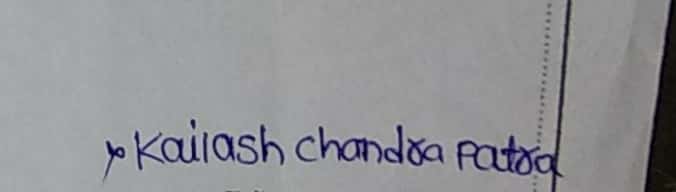 Kailash chandra patra